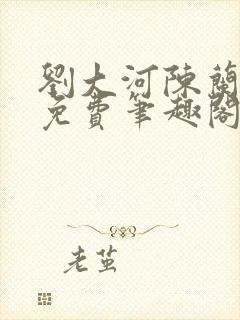 劉大河陳蘭
免費筆趣閣
老茧